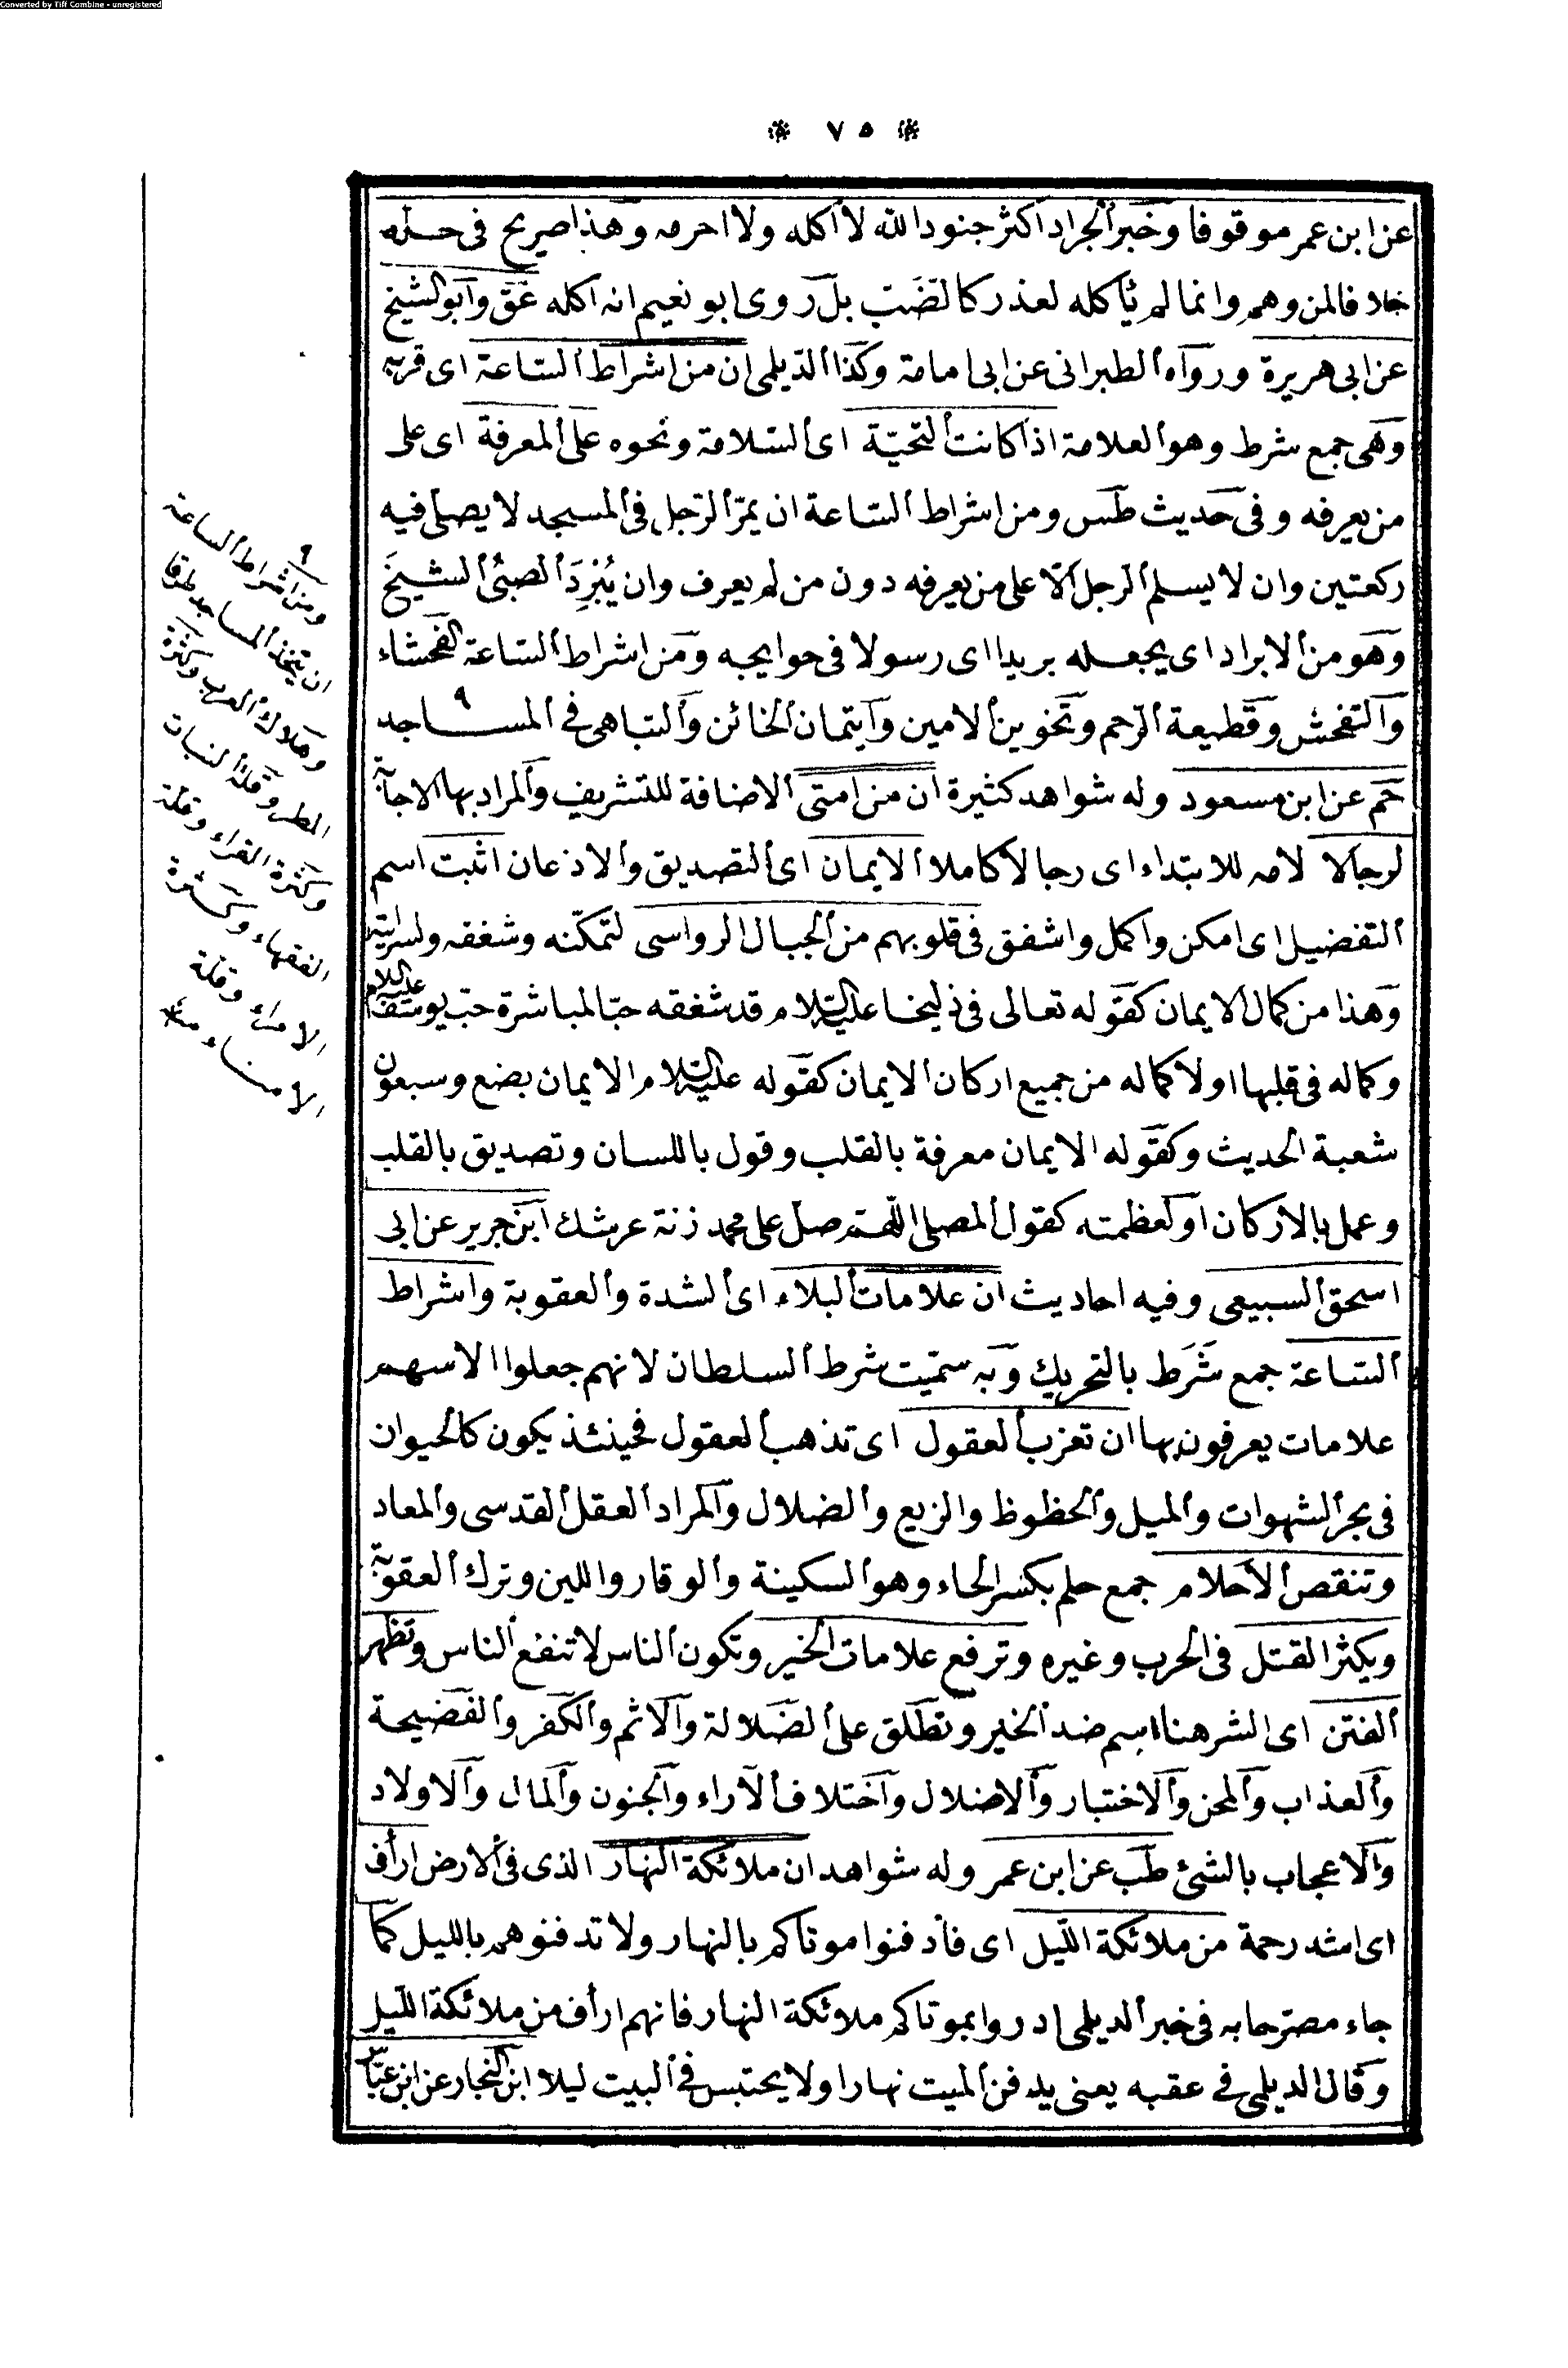 Converted by Tiff Combine - unregistered
* ٧٥ *
عن ابن عمر موقوفا وخبر الجراد اكثر جنود الله لا اكله ولا احرمه وهذا صريح فى حله
خلافا لمن وهم وانما لم يأكله لعذر كالضب بل روى ابو نعيم انه اكله عق وابو الشيخ
عن ابى هريرة ورواه الطبرانى عن ابى امامة وكذا الديلمى ان من اشراط الساعة اى قربه
وهى جمع شرط وهو العلامة اذا كانت التحية اى السلامة ونحوه على المعرفة اى على
من يعرفه وفى حديث طس ومن اشراط الساعة ان يمر الرجل فى المسجد لا يصلى فيه
ركعتين وان لا يسلم الرجل الا على من يعرفه دون من لم يعرف وان يُبْرِدَ الصبىُّ الشيخَ
وهو من الابراد اى يجعله بريدا اى رسولا فى حوايجه ومن اشراط الساعة الفحشاء
والتفحش وقطيعة الرحم وتخوين الامين وايتمان الخائن والتباهى فى المساجد ٩
حم عن ابن مسعود وله شواهد كثيرة ان من امتى الاضافة للتشريف والمراد بها الاجابة
لرجالا لامه للابتداء اى رجالا كاملا الايمان اى التصديق والاذعان اثبت اسم
التفضيل اى امكن واكمل واشفق فى قلوبهم من الجبال الرواسى لتمكنه وشغفه ولسرايته
وهذا من كمال الايمان كقوله تعالى فى زليخا عليه السلام قد شغفه حبا لمباشرة حب يوسف عليه السلام
وكماله فى قلبها اولا كماله من جميع اركان الايمان كقوله عليه السلام الايمان بضع وسبعون
شعبة الحديث وكقوله الايمان معرفة بالقلب وقول باللسان وتصديق بالقلب
وعمل بالاركان او لعظمته كقول المصلى اللهم صل على محمد زنة عرشك ابن جرير عن ابى
اسحق السبيعى وفيه احاديث ان علامات البلاء اى الشدة والعقوبة واشراط
الساعة جمع شَرَط بالتحريك وبه سميت شرط السلطان لانهم جعلوا الاسهم
علامات يعرفون بها ان تعزب العقول اى تذهب العقول فحينئذ يكون كالحيوان
فى بحر الشهوات والميل والحظوظ والزيع والضلال والمراد العقل القدسى والمعاد
وتنقص الاحلام جمع حلم بكسر الحاء وهو السكينة والوقار واللين وترك العقوبة
ويكثر القتل فى الحرب وغيره وترفع علامات الخير وتكون الناس لا تنفع الناس وتظهر
الفتن اى الشر هنا اسم ضد الخير وتطلق على الضلالة والاثم والكفر والفضيحة
والعذاب والمحن والاختبار والاضلال واختلاف الآراء والجنون والمال والاولاد
والاعجاب بالشئ طب عن ابن عمر وله شواهد ان ملائكة النهار الذى فى الارض ارأف
اى اشد رحمة من ملائكة الليل اى فأدفنوا موتاكم بالنهار ولا تدفنوهم بالليل كما
جاء مصرحا به فى خبر الديلمى ادروا بموتاكم ملائكة النهار فانهم ارأف من ملائكة الليل
وقال الديلمى فى عقبه يعنى يدفن الميت نهارا ولا يحتبس فى البيت ليلا ابن النجار عن ابن عباس
٩
ومن اشراط الساعة
ان تتخذ المساجد طرقا
وهلاك العرب وكثرة
المطر وقلة النبات
وكثرة القراء وقلة
الفقهاء وكثرة
الامراء وقلة
الامناء منه